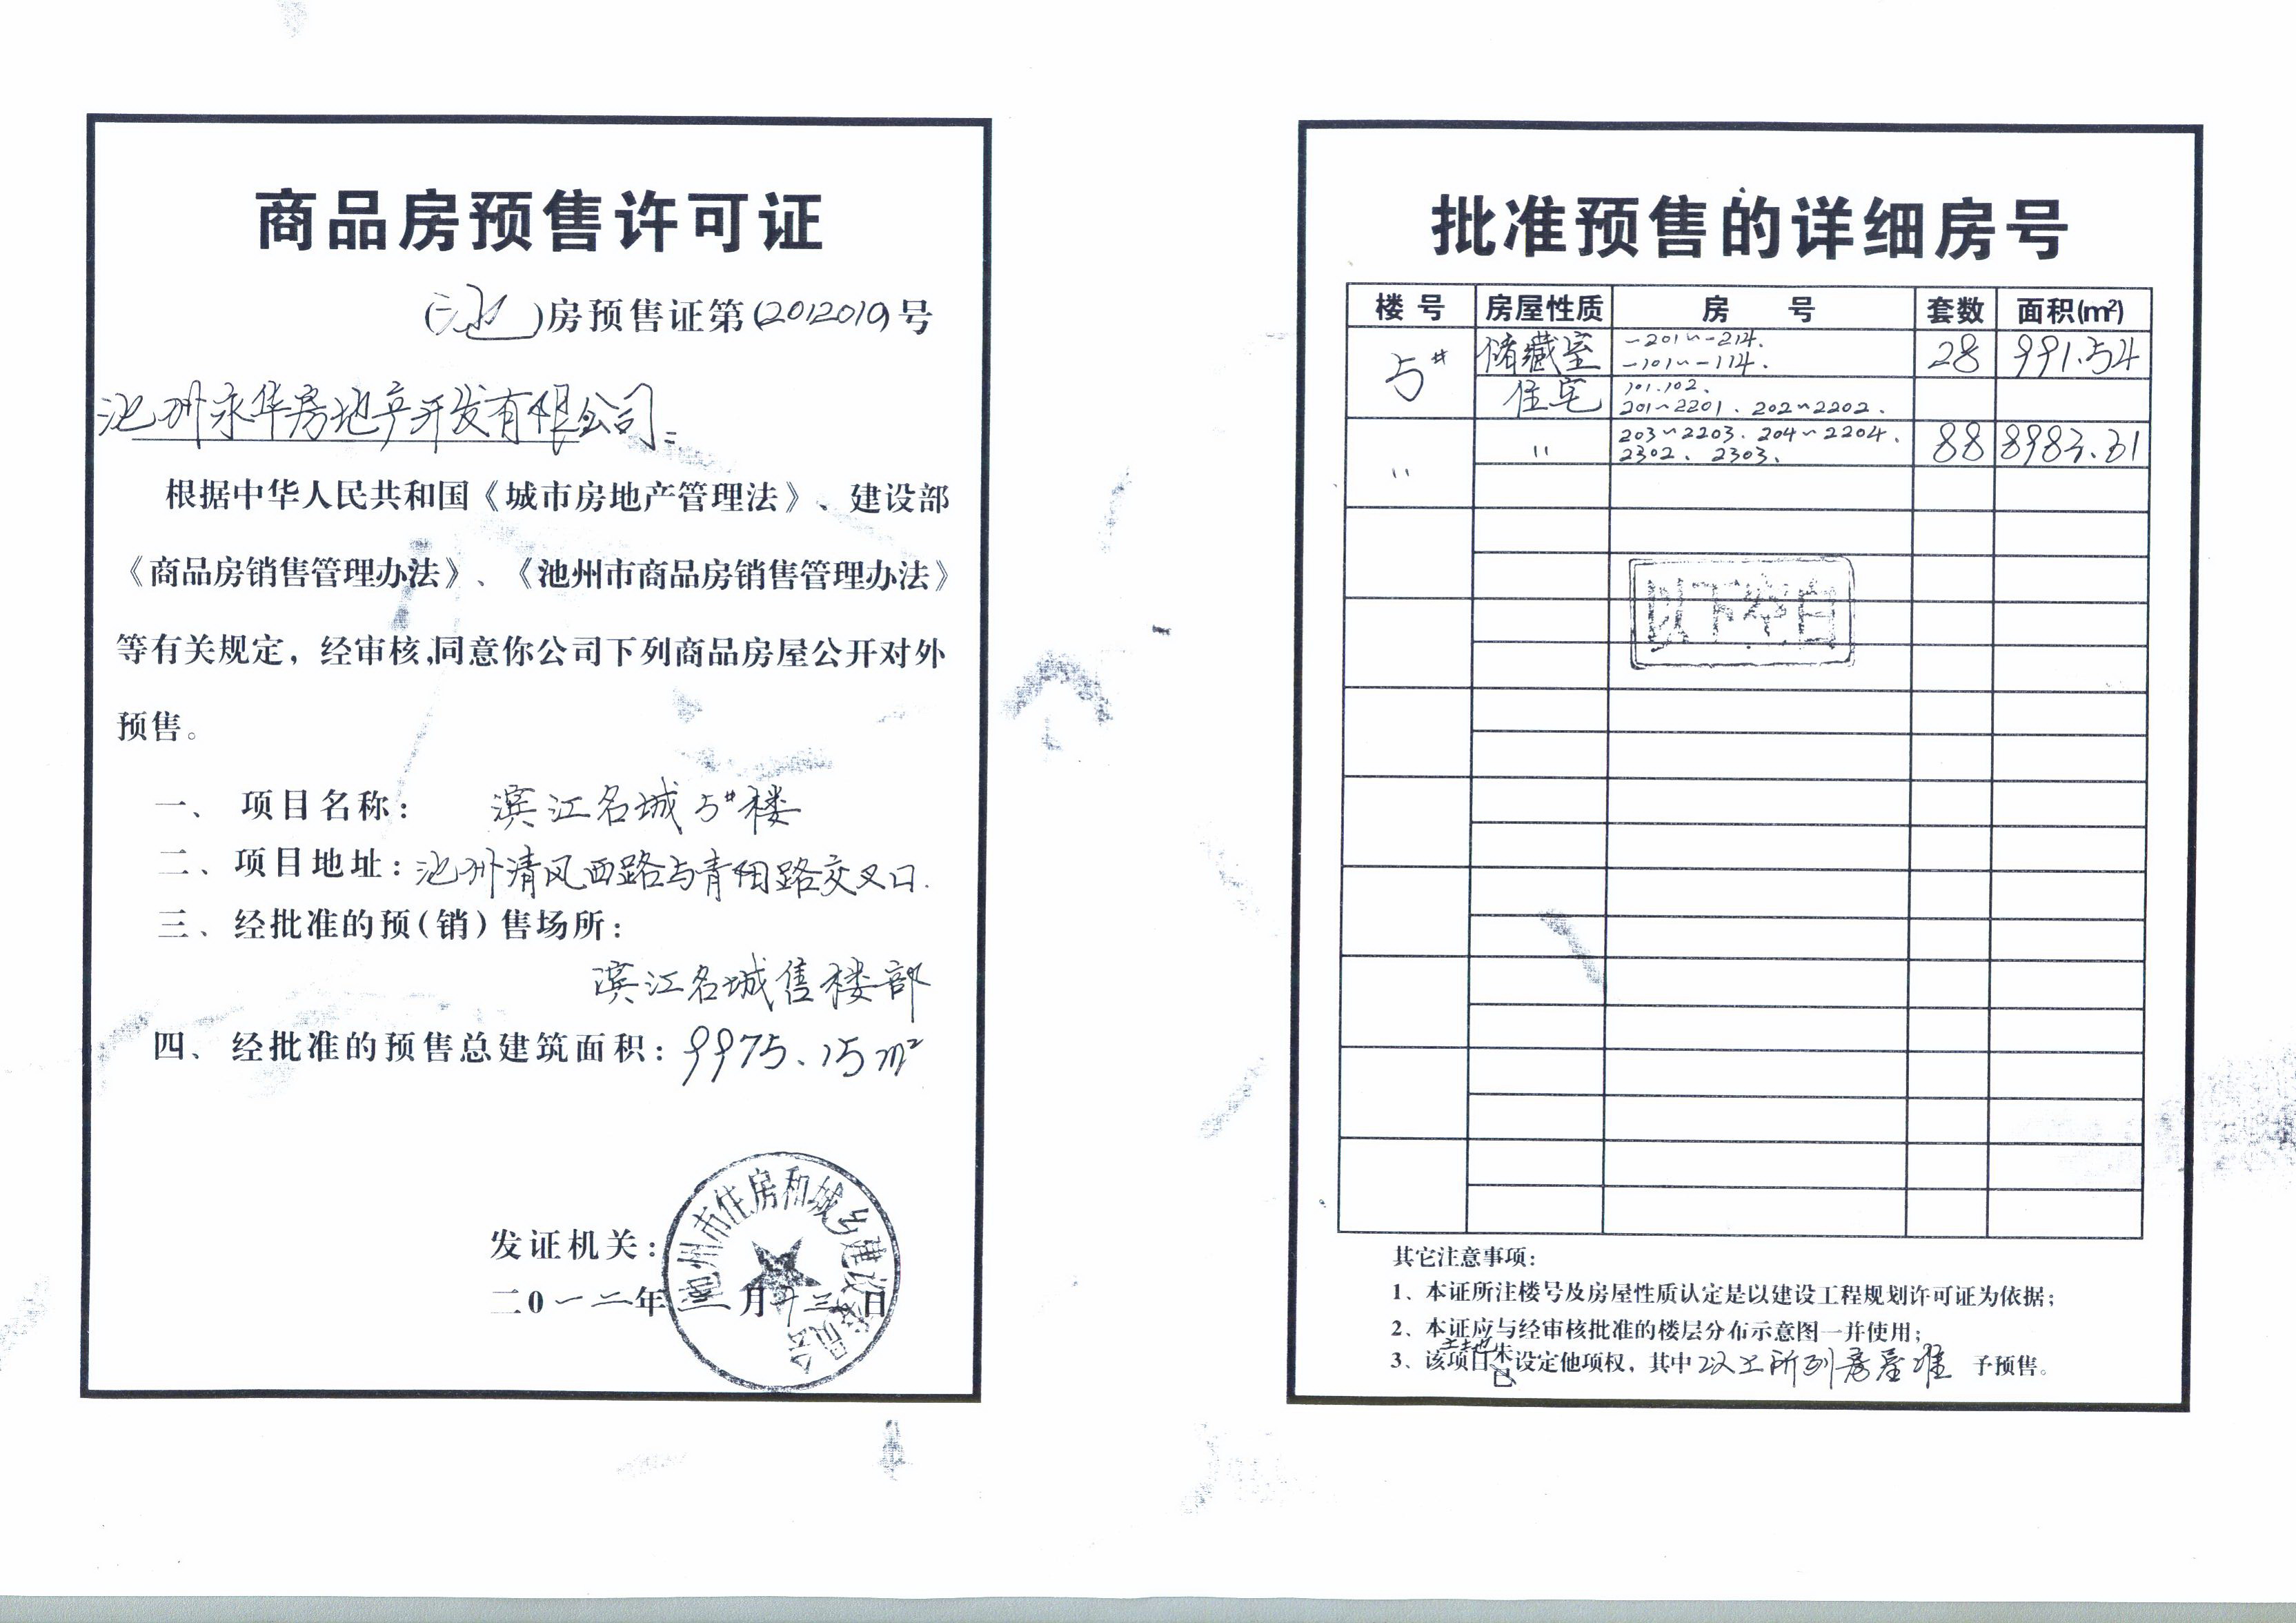 商品房预售许可证
(池)房预售证第(2012019)号
池州永华房地产开发有限公司:
根据中华人民共和国《城市房地产管理法》、建设部
《商品房销售管理办法》、《池州市商品房销售管理办法》
等有关规定，经审核,同意你公司下列商品房屋公开对外
预售。
一、项目名称: 滨江名城5#楼
二、项目地址: 池州清风西路与青阳路交叉口.
三、经批准的预(销)售场所:
滨江名城售楼部
四、经批准的预售总建筑面积: 9975.15m²
发证机关:
二0一二年三月十三日
池州市住房和城乡建设委员会
批准预售的详细房号
楼号 房屋性质 房 号 套数 面积(m²)
5# 储藏室 -201~-214. 28 991.54
-101~-114.
住宅 101.102.
201~2201、202~2202、
〃 〃 203~2203、204~2204、 88 8983.61
2302、2303、
以下空白
其它注意事项:
1、本证所注楼号及房屋性质认定是以建设工程规划许可证为依据;
2、本证应与经审核批准的楼层分布示意图一并使用;
土地未
3、该项目 设定他项权，其中以上所列房屋准予预售。
已